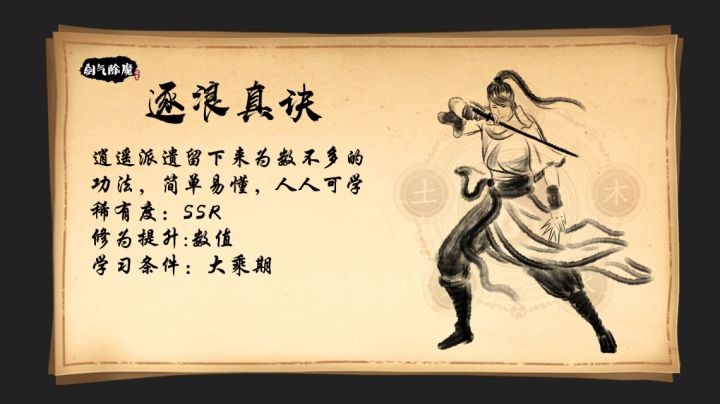 剑气除魔
逐浪真诀
逍遥派遗留下来为数不多的
功法，简单易懂，人人可学
稀有度：SSR
修为提升:数值
学习条件：大乘期
土
木